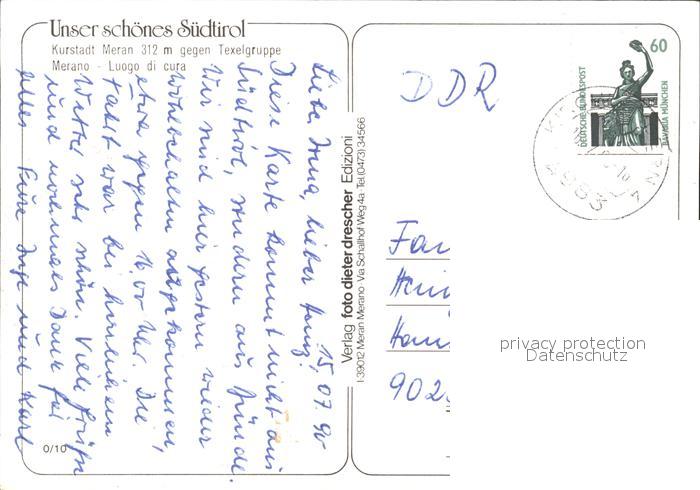 Unser schönes Südtirol
Kurstadt Meran 312 m gegen Texelgruppe
Merano - Luogo di cura
15.07.90
Liebe Irma, lieber Heinz!
Diese Karte kommt nicht aus
Südtirol, sondern aus Bünde.
Wir sind hier gestern wieder
wohlbehalten angekommen,
etwa gegen 16.00 Uhr. Die
Fahrt war bei herrlichem
Wetter sehr schön. Viele Grüße
und nochmals Dank für
alles Eure Inge und Karl
0/10
Verlag foto dieter drescher Edizioni
I-39012 Meran Merano - Via Schallhof Weg 4a Tel. (0473) 34566
DDR
60
DEUTSCHE BUNDESPOST
BAVARIA MÜNCHEN
4983
Fa
Hei
Ha
902
privacy protection
Datenschutz